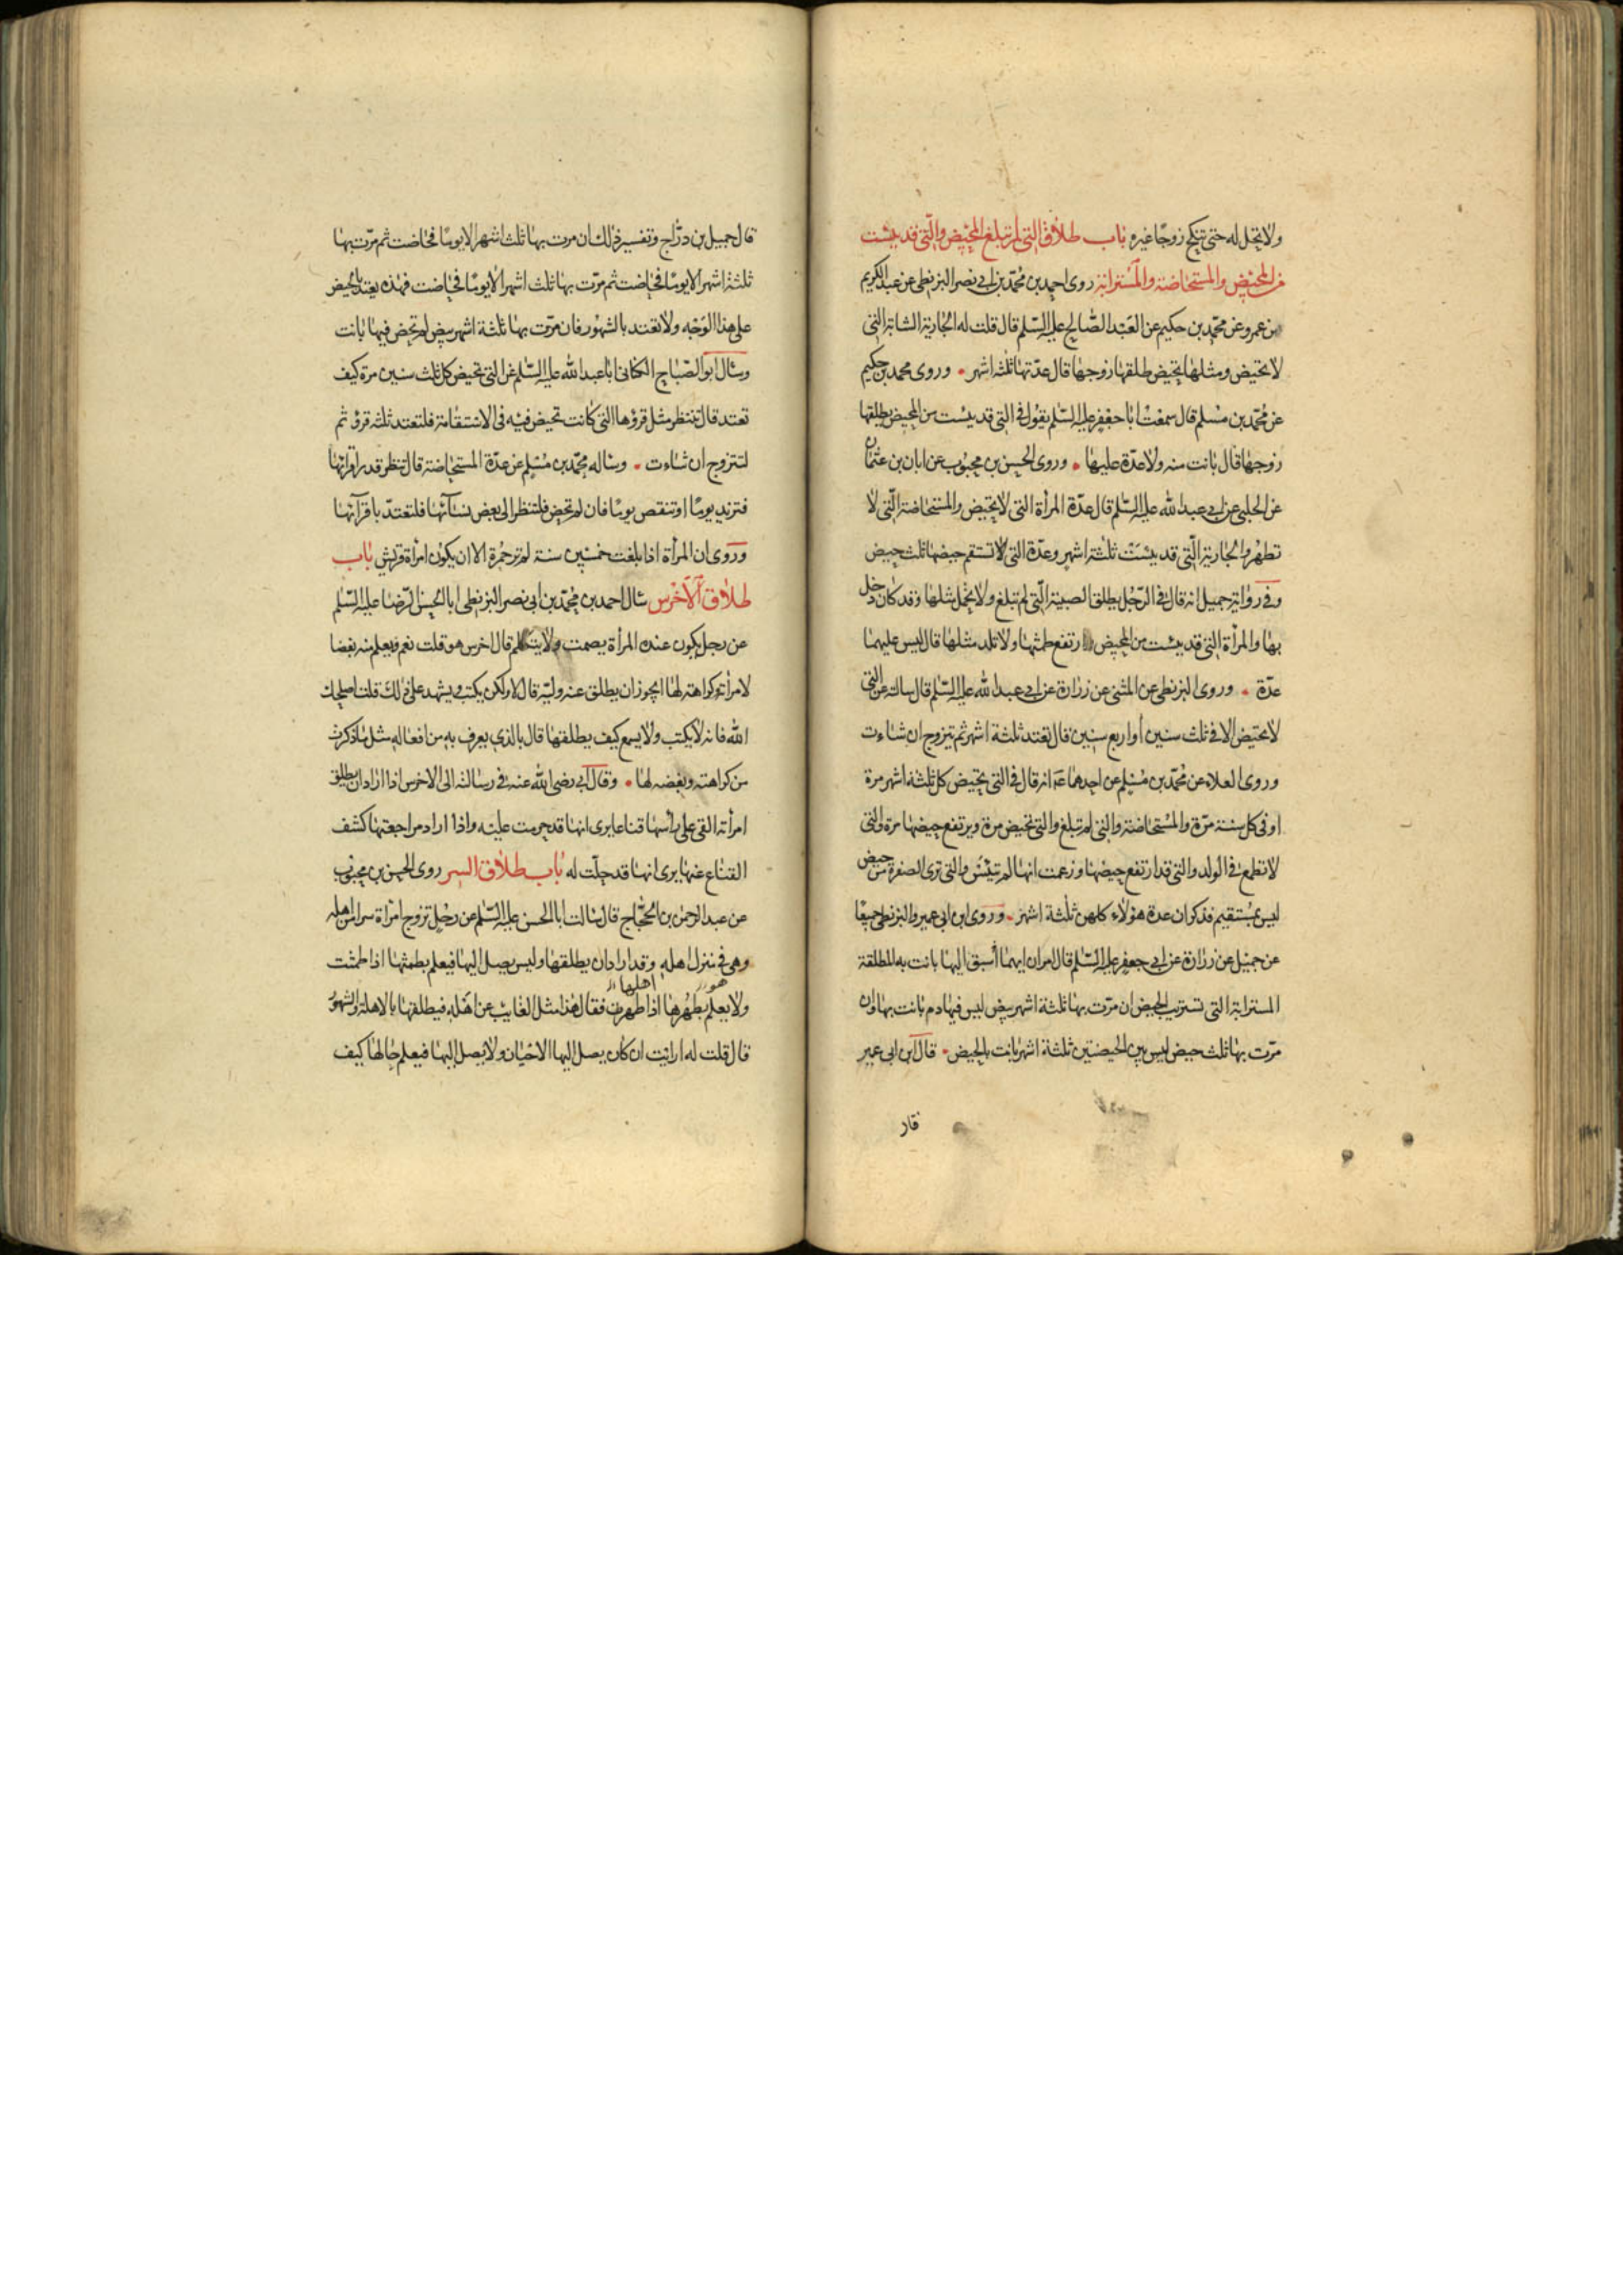 ولا تحل له حتى تنكح زوجا غيره باب طلاق التي لم تبلغ المحيض والتي قد يئست
من المحيض والمستحاضة والمسترابة روى احمد بن محمد بن ابي نصر البزنطي عن عبد الكريم
بن عمرو عن محمد بن حكيم عن العبد الصالح عليه السلم قال قلت له الجارية الشابة التي
لا تحيض ومثلها تحيض طلقها زوجها قال عدتها ثلثة اشهر • وروى محمد بن حكيم
عن محمد بن مسلم قال سمعت ابا جعفر عليه السلم يقول في التي قد يئست من المحيض يطلقها
زوجها قال بانت منه ولا عدة عليها • وروى الحسن بن محبوب عن ابان بن عثمان
عن الحلبي عن ابي عبد الله عليه السلم قال عدة المرأة التي لا تحيض والمستحاضة التي لا
تطهر والجارية التي قد يئست ثلثة اشهر وعدة التي لا تستقم حيضها ثلث حيض
وفي رواية جميل انه قال في الرجل يطلق الصبية التي لم تبلغ ولا تحمل مثلها وقد كان دخل
بها والمرأة التي قد يئست من المحيض ارتفع طمثها ولا تلد مثلها قال ليس عليهما
عدة • وروى البزنطي عن المثنى عن زرارة عن ابي عبد الله عليه السلم قال سالته عن التي
لا تحيض الا في ثلث سنين أو اربع سنين قال تعتد ثلثة اشهر ثم تتزوج ان شاءت
وروى العلاء عن محمد بن مسلم عن احدهما ع انه قال في التي تحيض كل ثلثة اشهر مرة
او في كل سنة مرة والمستحاضة والتي لم تبلغ والتي تحيض مرة ويرتفع حيضها مرة والتي
لا تطمع في الولد والتي قد ارتفع حيضها وزعمت انها لم تيئس والتي ترى الصفرة من حيض
ليس بمستقيم فذكر ان عدة هؤلاء كلهن ثلثة اشهر • وروى ابن ابي عمير والبزنطي جميعا
عن جميل عن زرارة عن ابي جعفر عليه السلم قال امران ايهما أسبق اليها بانت به المطلقة
المسترابة التي تستريب الحيض ان مرت بها ثلثة اشهر بيض ليس فيها دم بانت بها وان
مرت بها ثلث حيض ليس بين الحيضتين ثلثة اشهر بانت بالحيض • قال ابن ابي عمير
قال
قال جميل بن دراج وتفسير ذلك ان مرت بها ثلث اشهر الا يوما فحاضت ثم مرت بها
ثلثة اشهر الا يوما فحاضت ثم مرت بها ثلث اشهر الا يوما فحاضت فهذه تعتد بالحيض
على هذا الوجه ولا تعتد بالشهور فان مرت بها ثلثة اشهر بيض لم تحض فيها بانت
وسال ابو الصباح الكناني ابا عبد الله عليه السلم عن التي تحيض كل ثلث سنين مرة كيف
تعتد قال تنتظر مثل قروءها التي كانت تحيض فيه في الاستقامة فلتعتد ثلثة قروء ثم
لتتزوج ان شاءت • وساله محمد بن مسلم عن عدة المستحاضة قال تنظر قدر اقرائها
فتزيد يوما او تنقص يوما فان لم تحض فلتنظر الى بعض نسائها فلتعتد باقرآئها
وروى ان المرأة اذا بلغت خمسين سنة لم تر حمرة الا ان يكون امرأة قريش باب
طلاق الأخرس سئال احمد بن محمد بن ابي نصر البزنطي ابا الحسن الرضا عليه السلم
عن رجل يكون عنده المرأة يصمت ولا يتكلم قال اخرس هو قلت نعم ويعلم منه بغضا
لامرأته وكراهته لها ايجوز ان يطلق عنه وليه قال لا ولكن يكتب ويشهد على ذلك قلت اصلحك
الله فانه لا يكتب ولا يسمع كيف يطلقها قال بالذي يعرف به من افعاله مثل ما ذكرت
من كراهته وبغضه لها • وقال ابي رضي الله عنه في رسالته الى الاخرس اذا اراد ان يطلق
امرأته القى على رأسها قناعا يرى انها قد حرمت عليه واذا اراد مراجعتها كشف
القناع عنها يرى انها قد حلت له باب طلاق السر روى الحسن بن محبوب
عن عبد الرحمن بن الحجاج قال سالت ابا الحسن عليه السلم عن رجل تزوج امرأة سرا من اهله
وهي في منزل اهله وقد اراد ان يطلقها وليس يصل اليها فيعلم بطمثها اذا طمثت
هو اهلها
ولا يعلم بطهرها اذا طهرت فقال هذا مثل الغايب عن اهله فيطلقها بالاهلة والشهور
قال قلت له ارايت ان كان يصل اليها الاحيان ولا يصل اليها فيعلم حالها كيف